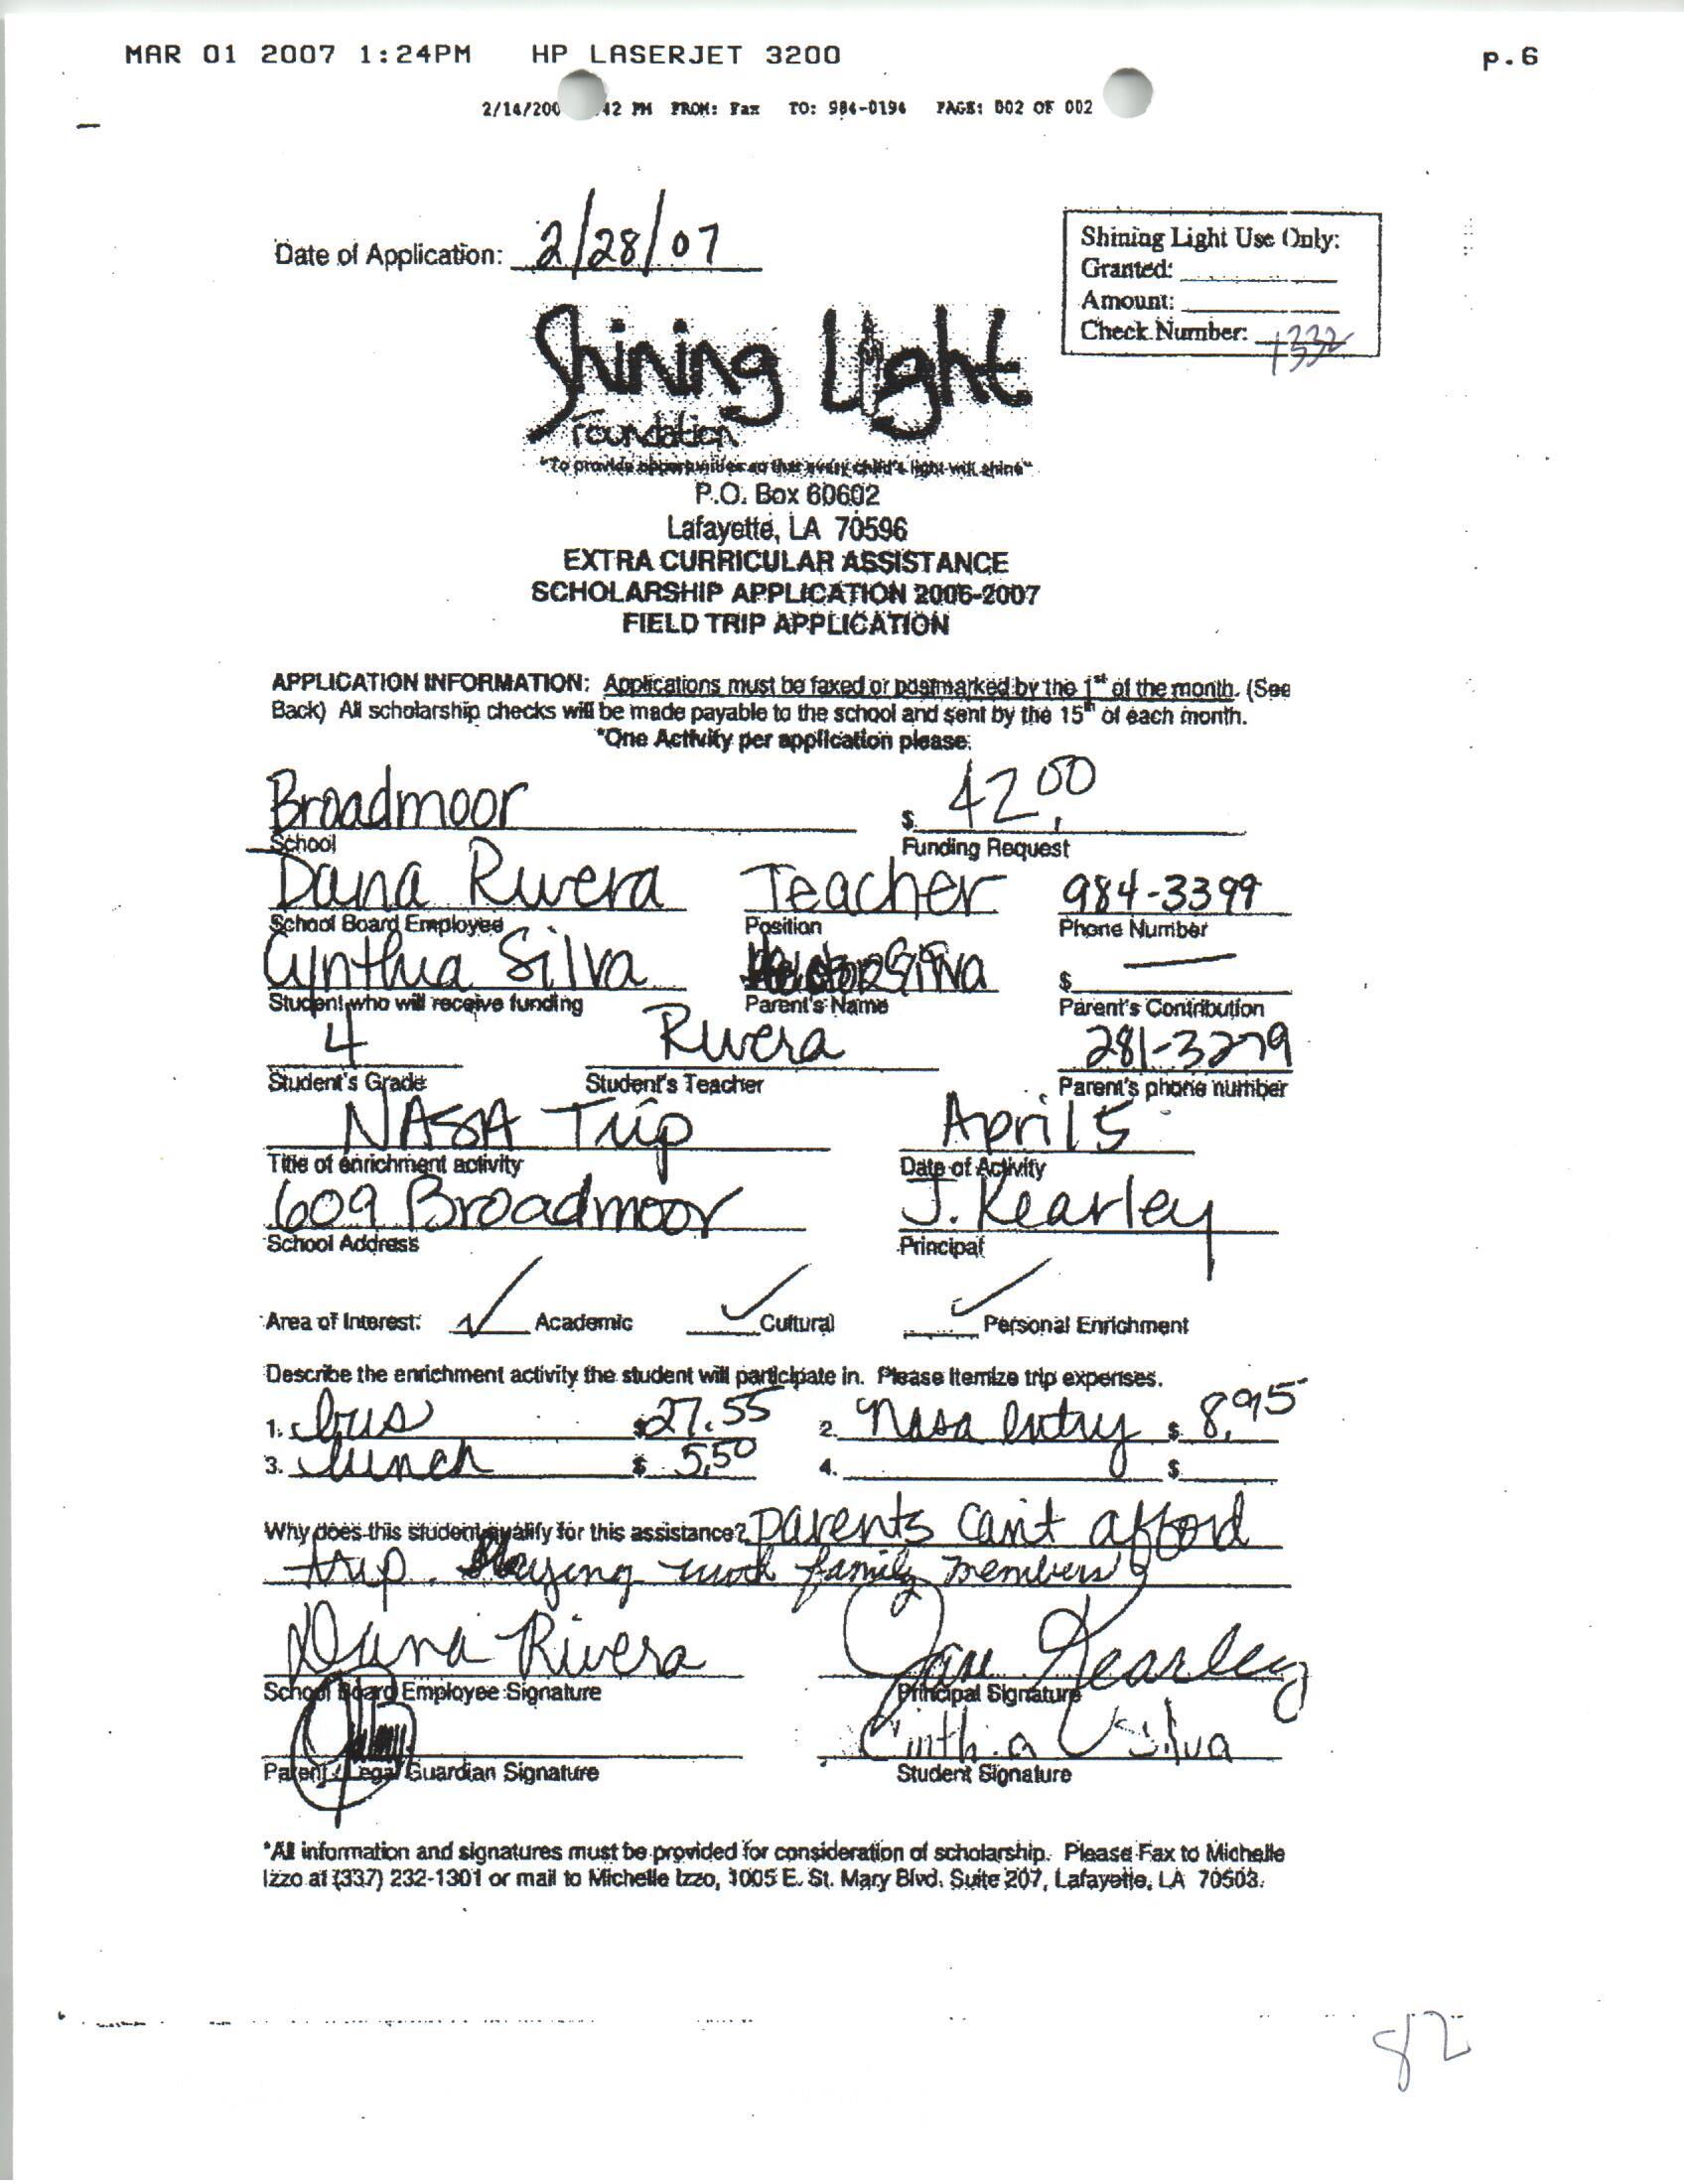 MAR 01 2007 1:24PM HP LASERJET 3200 p.6
2/14/200 42 PM FROM: Fax TO: 984-0194 PAGE: 002 OF 002
Date of Application: 2/28/07
Shining Light Use Only:
Granted:
Amount:
Check Number: 1332
Shining Light
Foundation
"To provide opportunities so that every child's light will shine"
P.O. Box 60602
Lafayette, LA 70596
EXTRA CURRICULAR ASSISTANCE
SCHOLARSHIP APPLICATION 2006-2007
FIELD TRIP APPLICATION
APPLICATION INFORMATION: Applications must be faxed or postmarked by the 1st of the month. (See
Back) All scholarship checks will be made payable to the school and sent by the 15th of each month.
*One Activity per application please.
Broadmoor $ 42.00
School Funding Request
Dana Rivera Teacher 984-3399
School Board Employee Position Phone Number
Cynthia Silva Silva $ —
Student who will receive funding Parent's Name Parent's Contribution
4 Rivera 281-3279
Student's Grade Student's Teacher Parent's phone number
NASA Trip April 5
Title of enrichment activity Date of Activity
609 Broadmoor J. Kearley
School Address Principal
Area of Interest: ✓ Academic ✓ Cultural ✓ Personal Enrichment
Describe the enrichment activity the student will participate in. Please itemize trip expenses.
1. bus $27.55 2. Nasa entry $ 8.95
3. lunch $ 5.50 4. $
Why does this student qualify for this assistance? parents can't afford
trip. Staying with family members
Dana Rivera Jan Kearley
School Board Employee Signature Principal Signature
Cinthia Silva
Parent / Legal Guardian Signature Student Signature
*All information and signatures must be provided for consideration of scholarship. Please Fax to Michelle
Izzo at (337) 232-1301 or mail to Michelle Izzo, 1005 E. St. Mary Blvd. Suite 207, Lafayette, LA 70503.
82